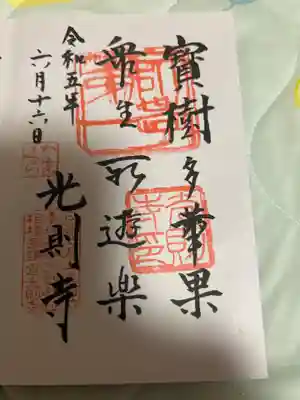 寶樹多華果
衆生所遊樂
令和五年
六月十六日
光則寺